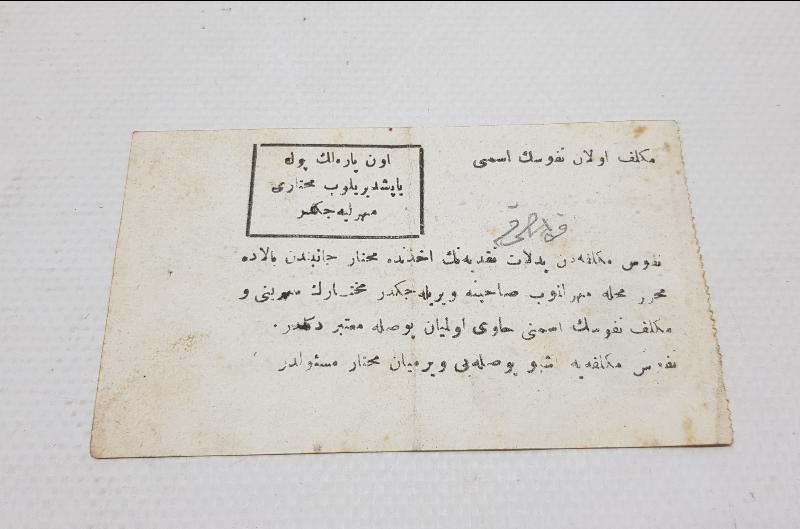 مكلف اولان نفوسك اسمى
اون پاره‌لك پول
ياپشديريلوب مختارى
مهرليه جكدر
نفوس مكلفه‌دن بدلات نقديه‌نك اخذنده مختار جانبندن بالاده
محرر محله مهرلنوب صاحبنه ويريله جكدر مختارك مهرينى و
مكلف نفوسك اسمنى حاوى اولميان پوصله معتبر دكلدر.
نفوس مكلفه‌يه اشبو پوصله‌يى ويرميان مختار مسئولدر